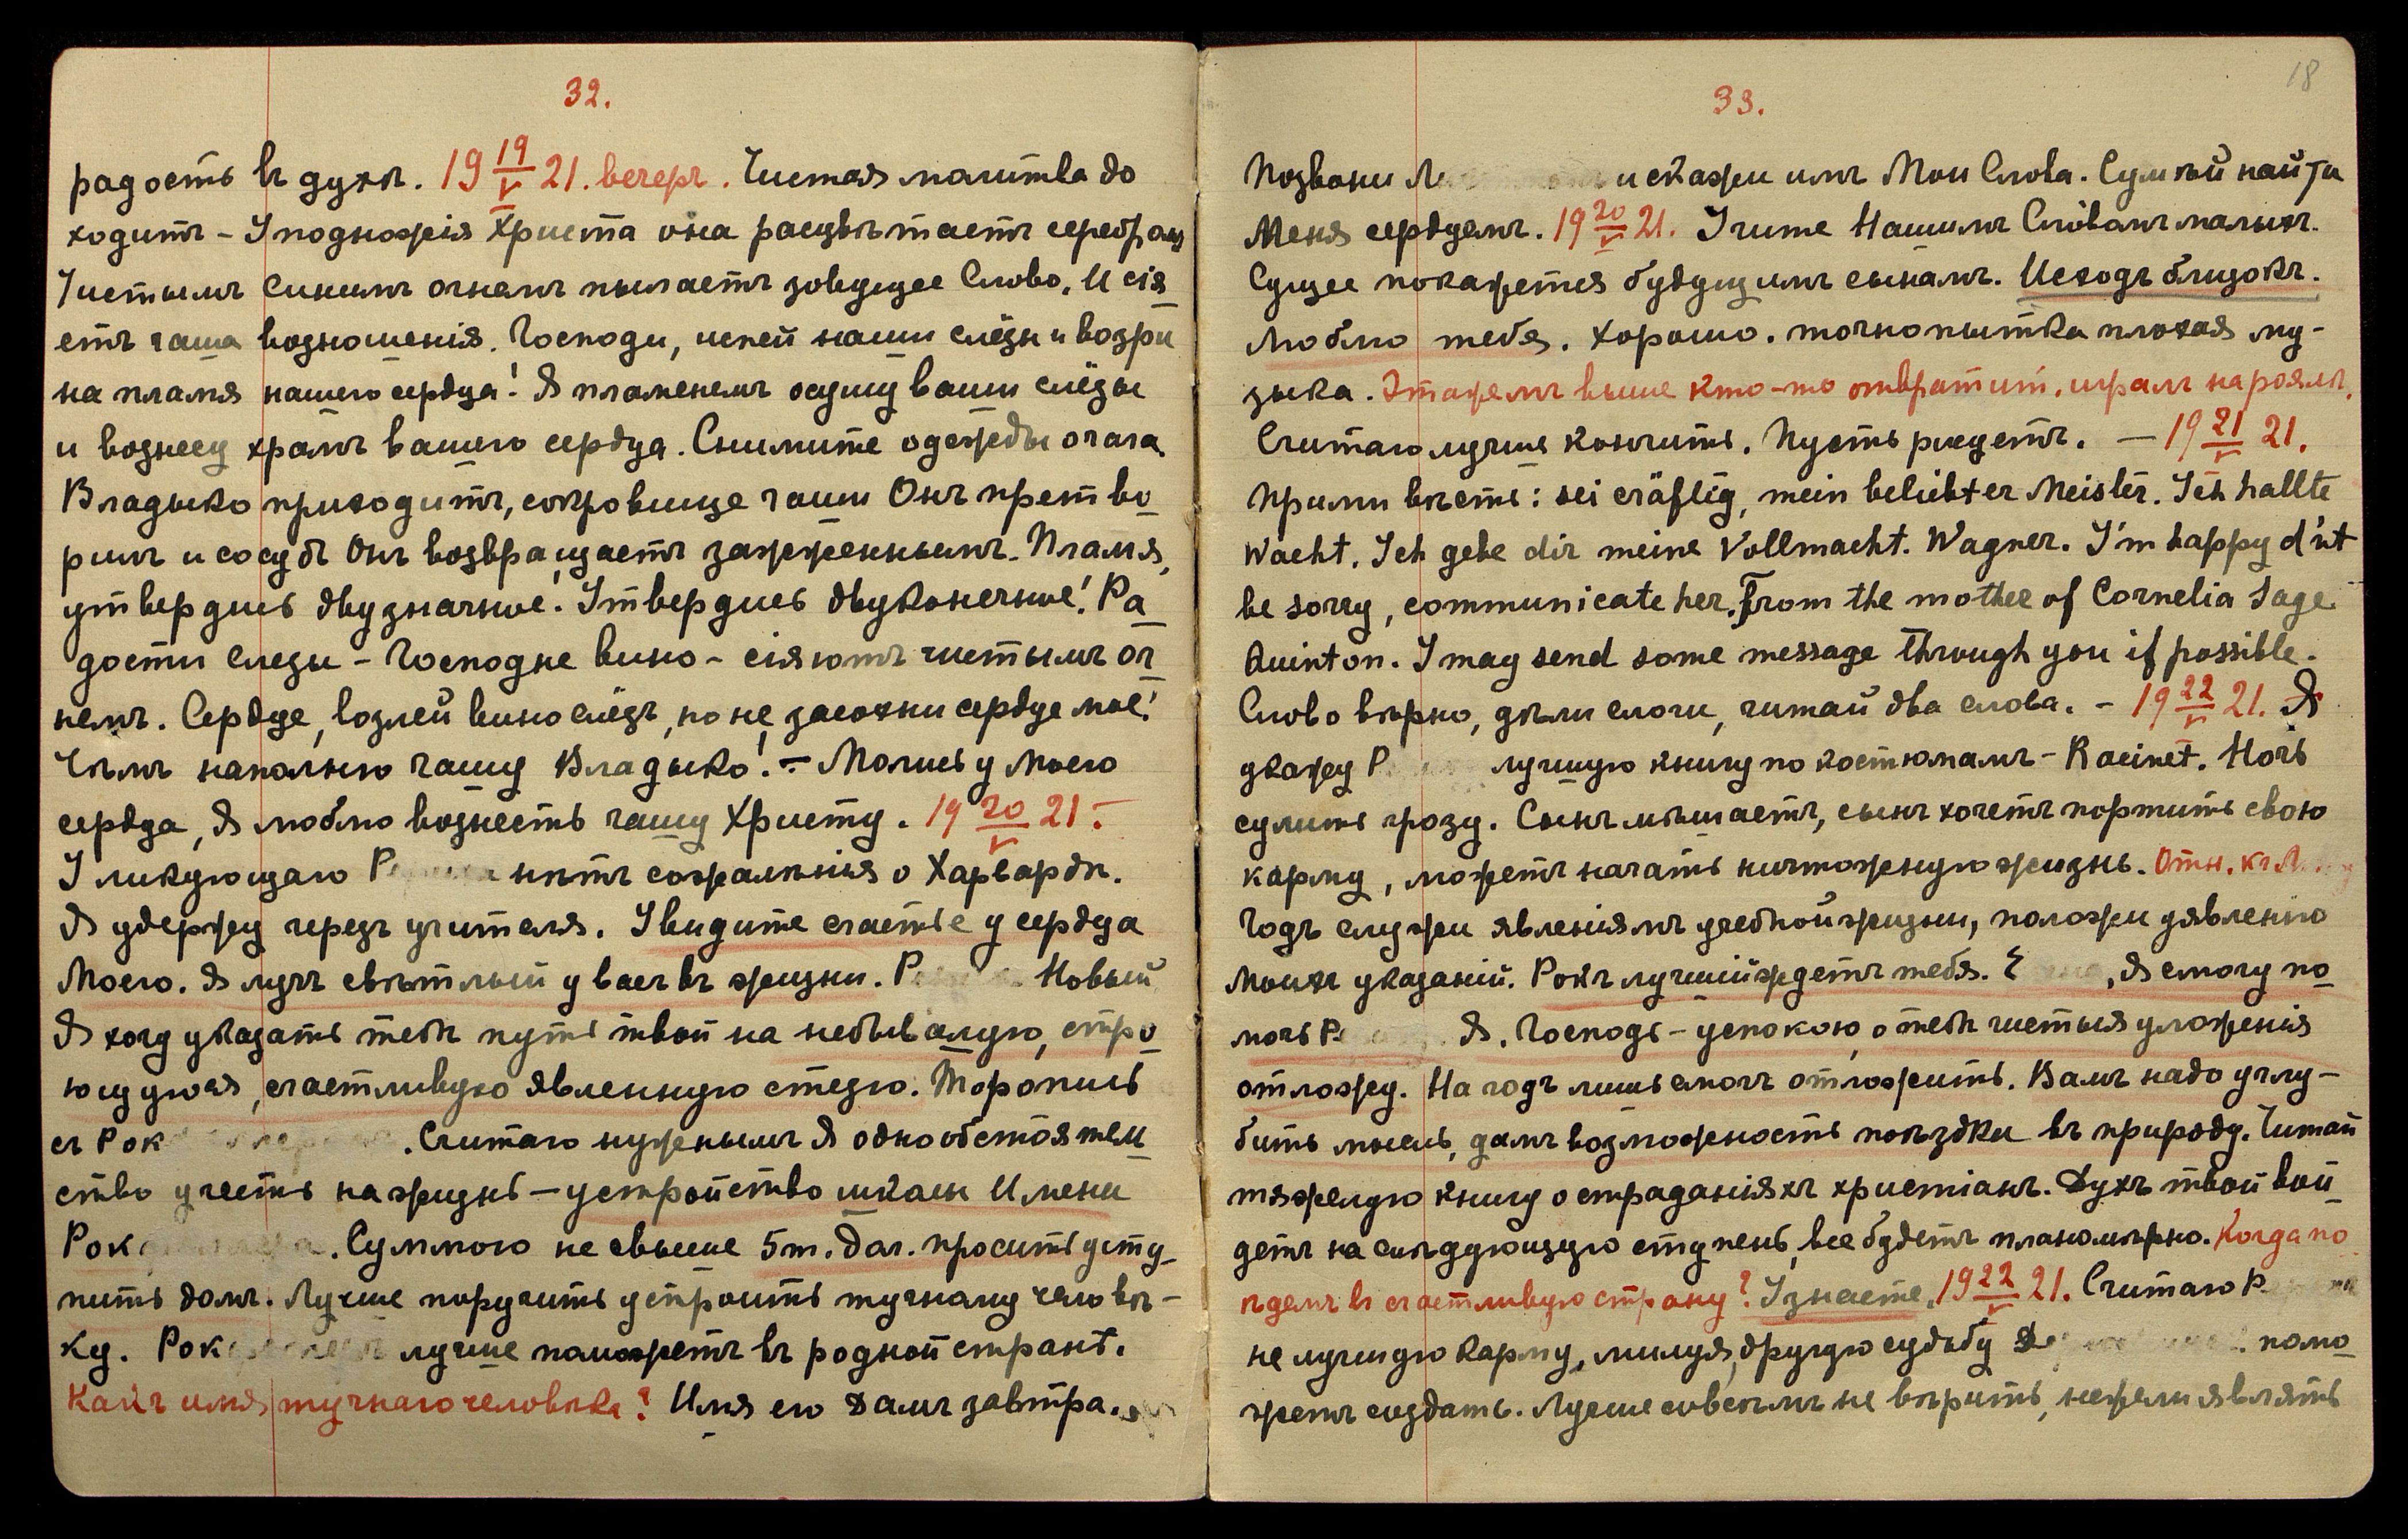 32.
радость въ духѣ. 19 19/V 21. вечеръ. Чистая молитва до
ходитъ – У подножія Христа она расцвѣтаетъ серебромъ
Чистымъ синимъ огнемъ пылаетъ зовущее Слово. И сія
етъ чаша возношенія. Господи, испей наши слёзы и возри
на пламя нашего сердца! Я пламенемъ осушу ваши слёзы
и вознесу храмъ вашего сердца. Снимите одежды очага.
Владыко приходитъ, сокровище чаши Онъ претво
рилъ и сосудъ Онъ возвращаетъ зажженнымъ. Пламя,
утвердись двузначное! Утвердись двуконечное! Ра
дости слезы – Господне вино – сіяютъ чистымъ ог
немъ. Сердце, возлей вино слёзъ, но не засохни сердце мое!
Чѣмъ наполню чашу Владыко! – Молись у Моего
сердца, Я люблю вознесть чашу Христу. 19 20/V 21. –
У ликующаго Р нѣтъ сожалѣнія о Харвардѣ.
Я удержу черезъ учителя. Увидите счастье у сердца
Моего. Я лучъ свѣтлый у васъ въ жизни. Р Новый
Я хочу указать тебѣ путь твой на небывалую, стро
ющуюся, счастливую явленную стезю. Торопись
съ Рок . Считаю нужнымъ Я одно обстоятель
ство учесть на жизнь – устройство школы Имени
Рок . Суммою не свыше 5 т. дол. просить усту
пить домъ. Лучше поручить устроить тучному человѣ-
ку. Рок лучше поможетъ въ родной странѣ.
Какъ имя тучнаго человѣка? Имя его Дамъ завтра.
18
33.
Позвони Л и скажи имъ Мои Слова. Сумѣй найти
Меня сердцемъ. 19 20/V 21. Учите Нашимъ Словамъ малыхъ.
Сущее покажется будущимъ сынамъ. Исходъ близокъ.
Люблю тебя. Хорошо. точно пытка плохая му-
зыка. Этажемъ выше кто-то отвратит. игралъ на роялѣ.
Считаю лучше кончить. Пусть рисуетъ. – 19 21/V 21.
Прими вѣсть: sei cräftig, mein beliebter Meister. Ich hallte
Wacht. Ich gebe dir meine Vollmacht. Wagner. I'm happy d'nt
be sorry, communicate her. From the mother of Cornelia Sage
Quinton. I may send some message through you if possible.
Слово вѣрно, дѣли слоги, читай два слова. – 19 22/V 21. Я
укажу Р лучшую книгу по костюмамъ – Racinet. Ночь
сулитъ грозу. Сынъ мѣшаетъ, сынъ хочетъ портить свою
карму, можетъ начать ничтожную жизнь. Отн. къ
Годъ служи явленіямъ учебной жизни, положи уявленію
Моихъ указаній. Рокъ лучшій ждетъ тебя. , Я смогу по
мочь Р Я, Господь – успокою, о тебѣ чистыя уложенія
отложу. На годъ лишь смогъ отложить. Вамъ надо углу-
бить мысль, дамъ возможность поѣздки въ природу. Читай
тяжелую книгу о страданіяхъ христіанъ. Духъ твой вой
детъ на слѣдующую ступень, все будетъ планомѣрно. Когда по
ѣдемъ въ счастливую страну? Узнаете. 19 22/V 21. Считаю Р
не лучшую карму, милуя, другую судьбу помо
жетъ создать. Лучше совсѣмъ не вѣрить, нежели являть